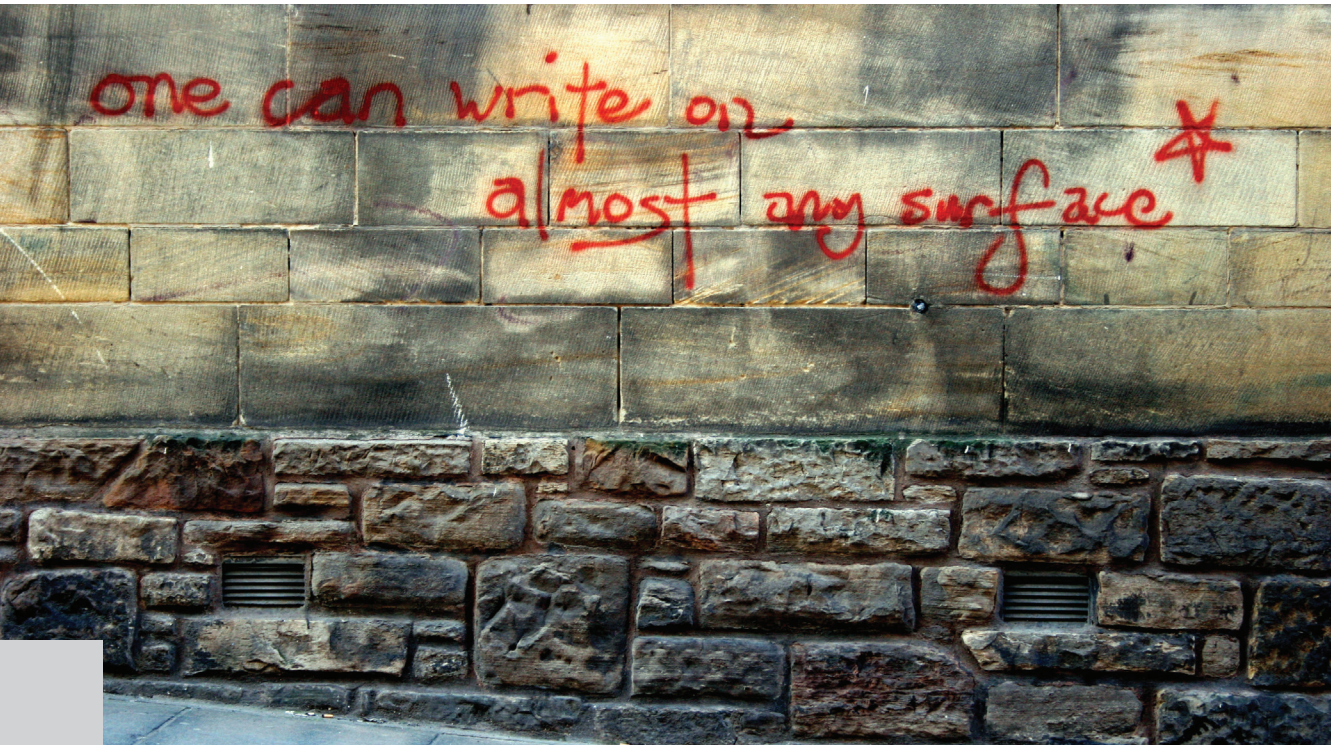 one can write on
almost any surface